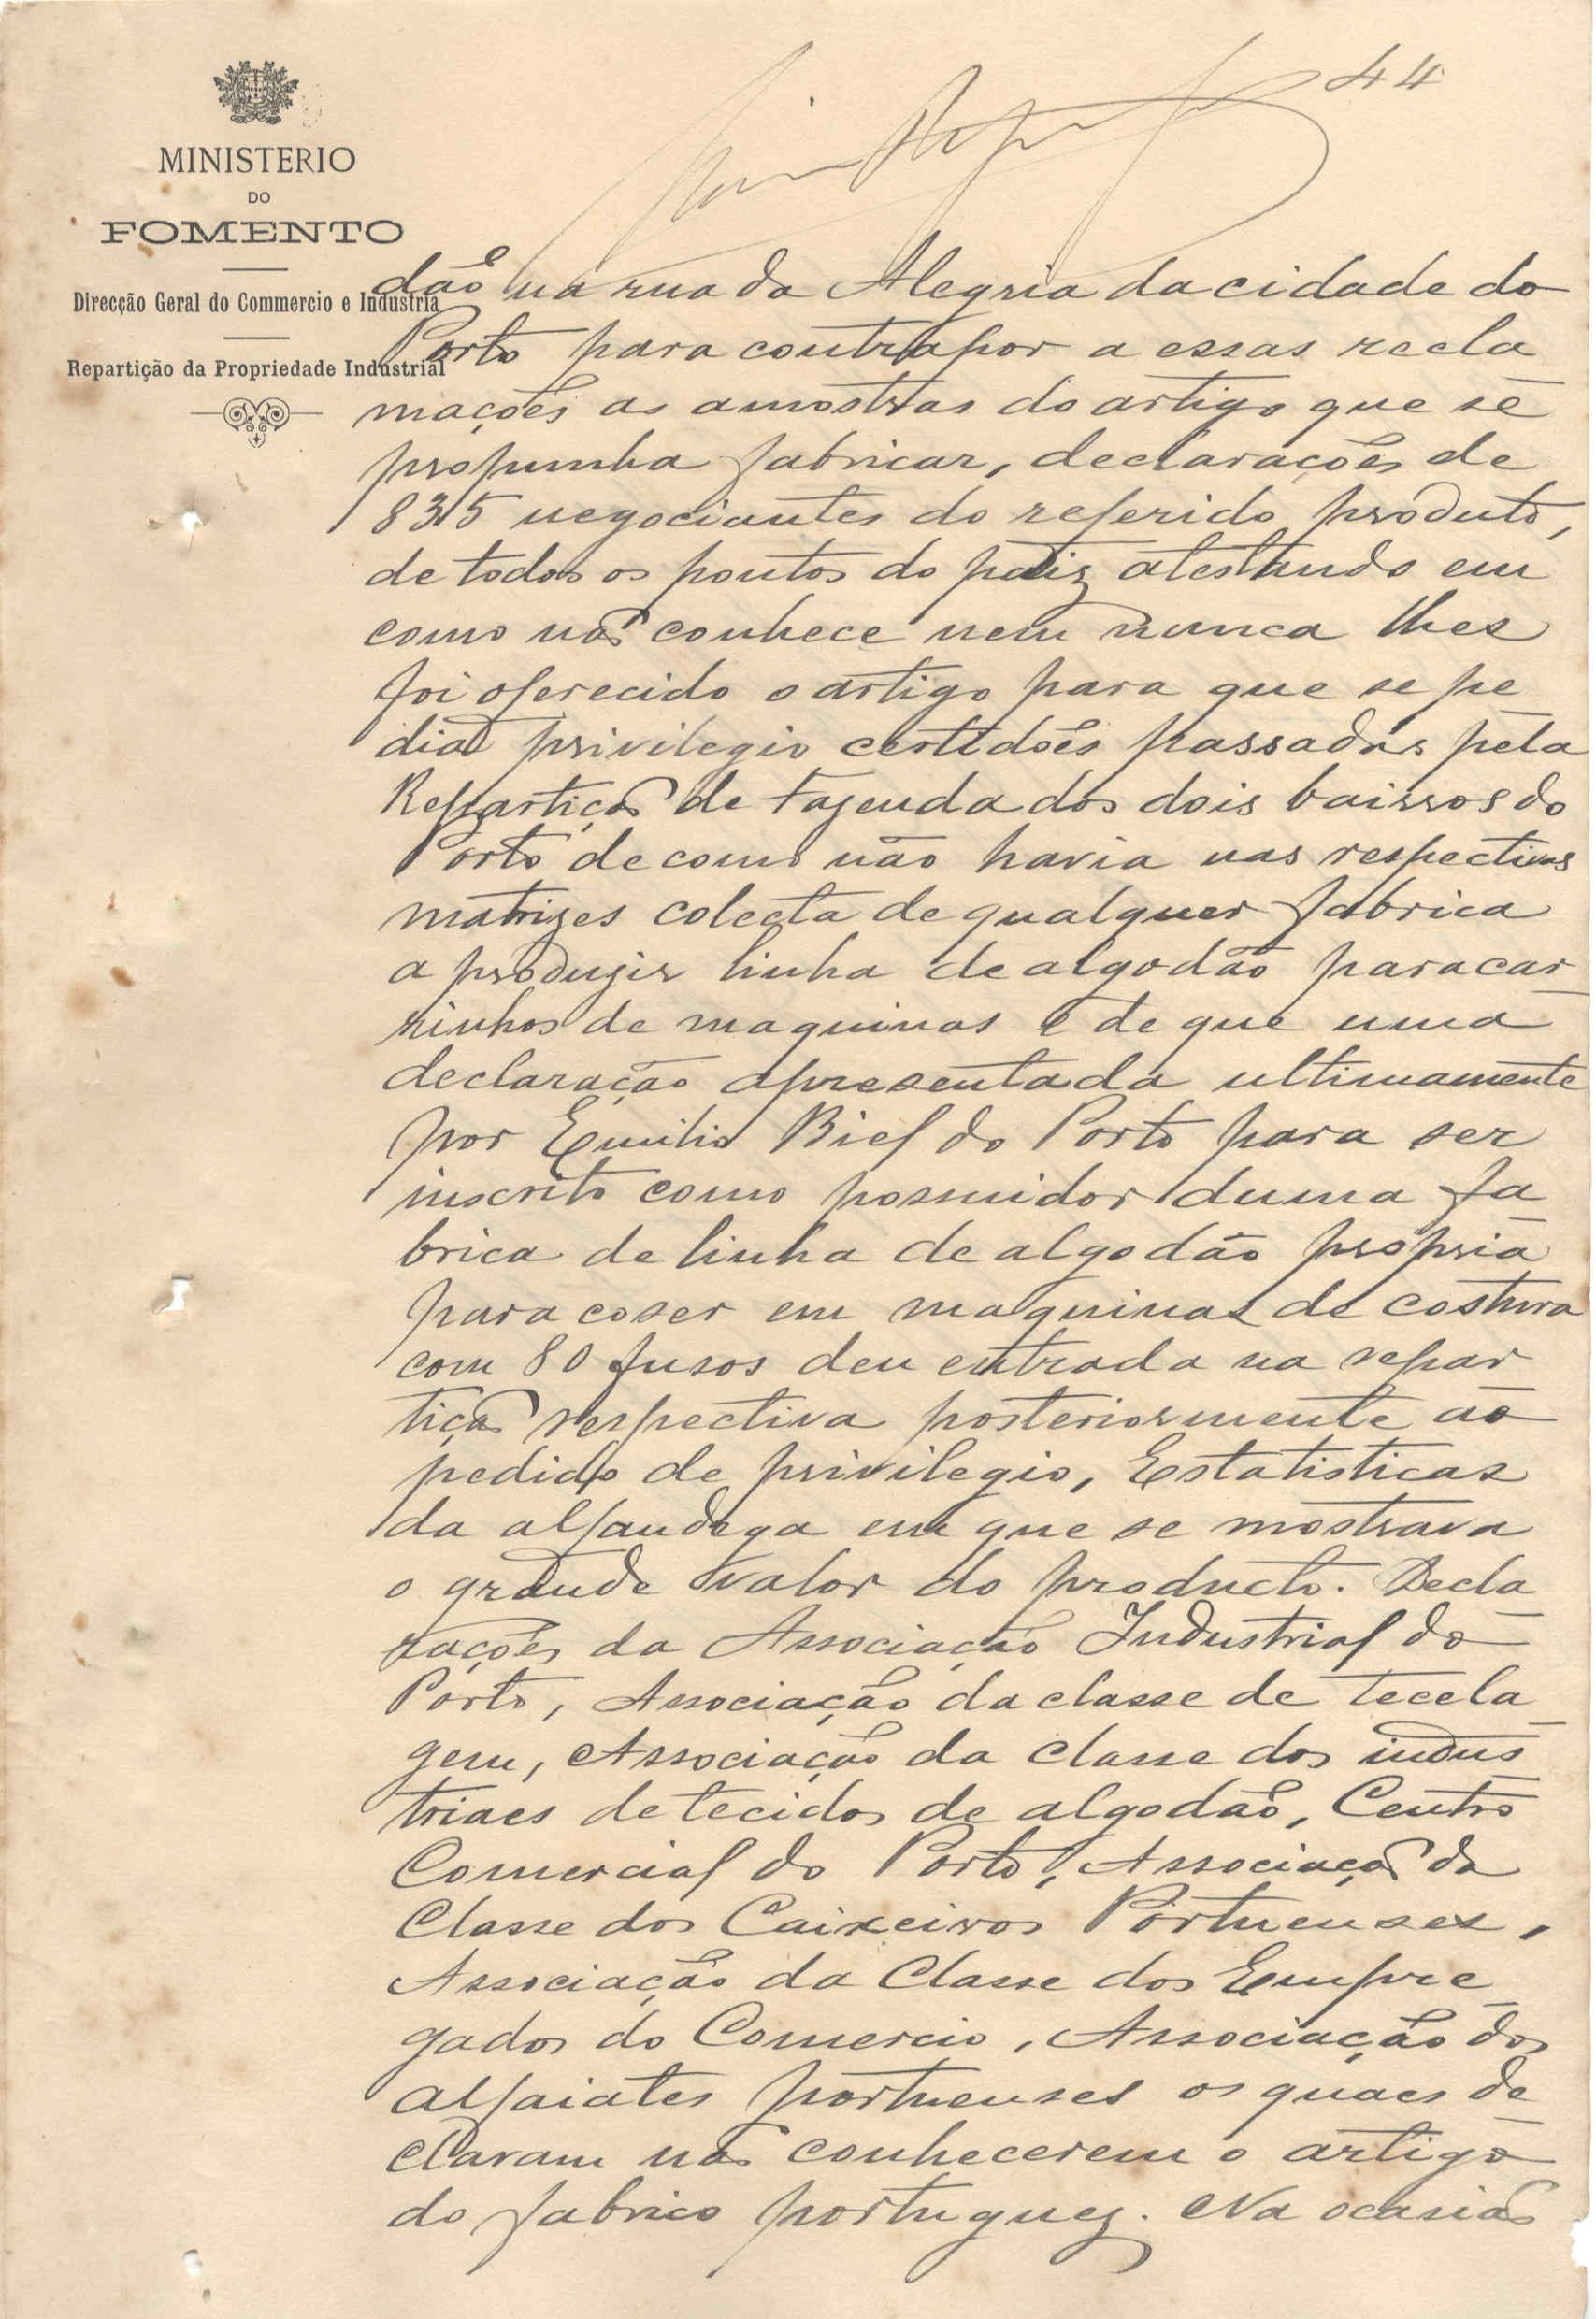 44
MINISTERIO
DO
FOMENTO
Direcção Geral do Commercio e Industria
Repartição da Propriedade Industrial
dão na rua da Alegria da cidade do
Porto para contrapor a essas recla
mações as amostras do artigo que se
propunha fabricar, declarações de
835 negociantes do referido produto,
de todos os pontos do paiz atestando em
como não conhece nem nunca lhes
foi oferecido o artigo para que se pe
dia privilegio certidões passadas pela
Repartição de Fazenda dos dois bairros do
Porto de como não havia nas respectivas
matrizes colecta de qualquer fabrica
a produzir linha de algodão para car
rinhos de maquinas e de que uma
declaração apresentada ultimamente
por Emilio Biel do Porto para ser
inscrito como possuidor duma fa
brica de linha de algodão propria
para coser em maquinas de costura
com 80 fusos deu entrada na repar
tição respectiva posteriormente ao
pedido de privilegio, Estatisticas
da alfandega em que se mostrava
o grande valor do producto. Decla
rações da Associação Industrial do
Porto, Associação da classe de tecela
gem, Associação da classe dos indus
triaes de tecidos de algodão, Centro
Comercial do Porto, Associação da
Classe dos Caixeiros Portuenses,
Associação da Classe dos Empre
gados do Comercio, Associação dos
alfaiates portuenses os quaes de
claram não conhecerem o artigo
do fabrico portuguez. Na ocasião